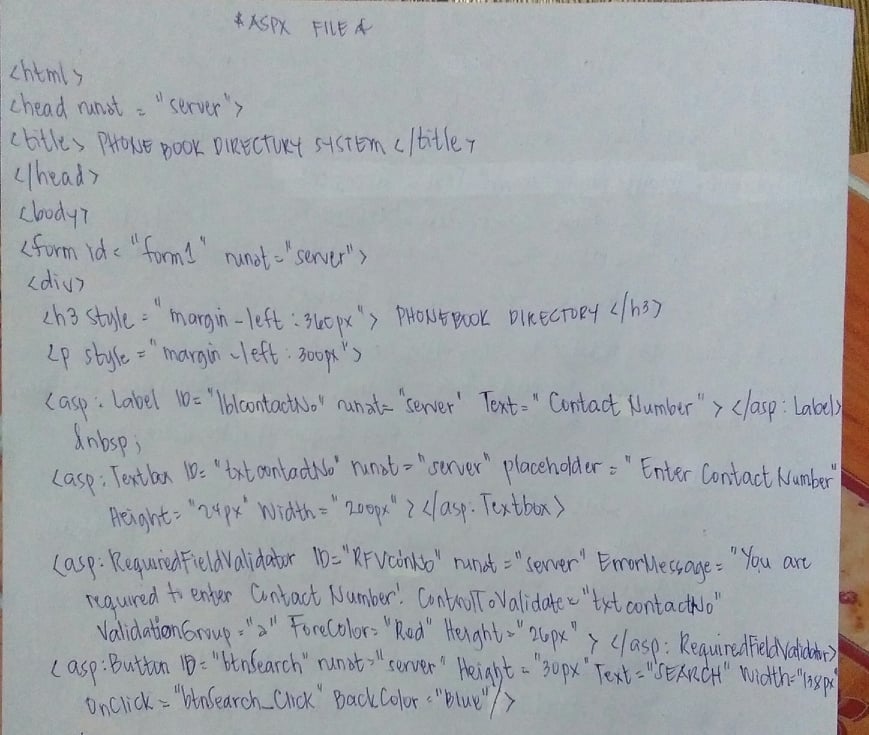 *ASPX FILE*
<html>
<head runat = "server">
<title> PHONE BOOK DIRECTORY SYSTEM </title>
</head>
<body>
<form id = "form1" runat = "server">
<div>
<h3 style = "margin-left : 360px"> PHONEBOOK DIRECTORY </h3>
<p style = "margin-left : 300px">
<asp: Label ID= "lblcontactNo" runat= "server' Text=" Contact Number" > </asp: Label>
&nbsp;
<asp: Textbox ID= "txtcontactNo" runat= "server" placeholder = " Enter Contact Number"
Height= "24px" Width= "200px" > </asp: Textbox>
<asp: RequiredFieldValidator ID="RFVconNo" runat = "server" ErrorMessage = "You are
required to enter Contact Number'. ControlToValidate = "txtcontactNo"
ValidationGroup = "a" ForeColor= "Red" Height= "26px" > </asp: RequiredFieldValidator>
<asp:Button ID= "btnSearch" runat= "server" Height = "30px" Text= "SEARCH" Width="138px"
OnClick = "btnSearch_Click" BackColor = "Blue"/>